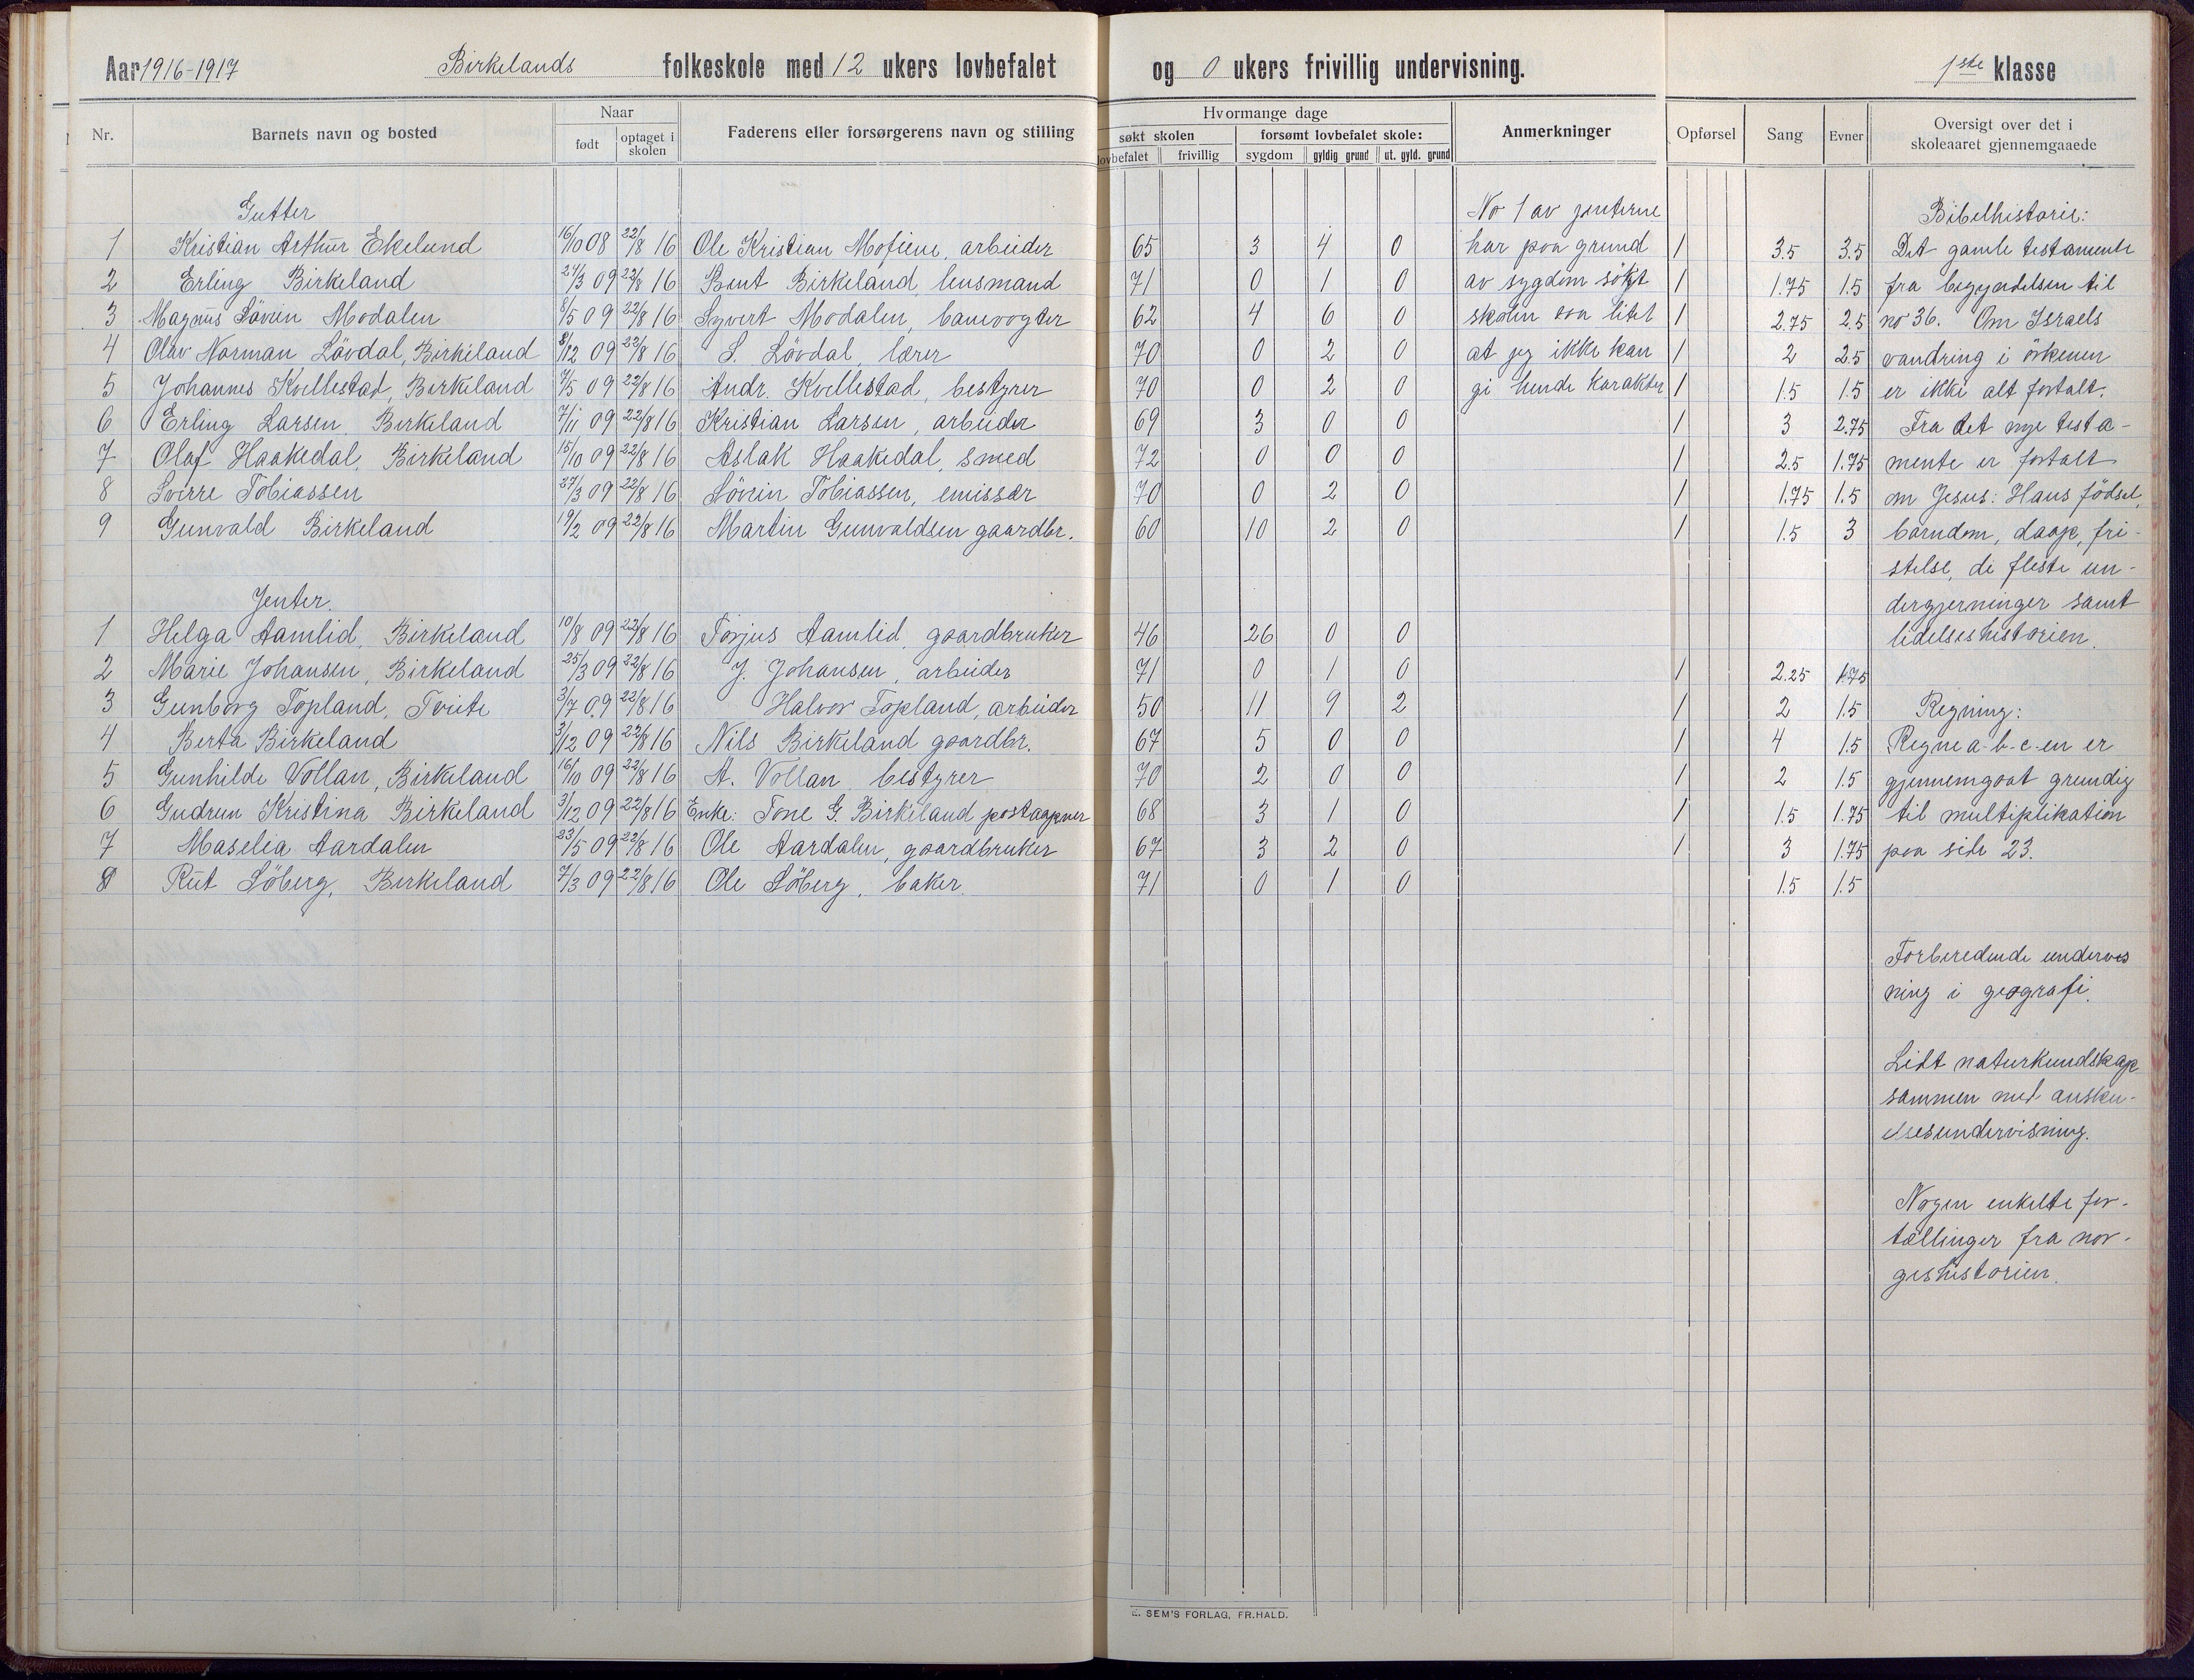 Aar 1916-1917 Birkelands folkeskole med 12 ukers lovbefalet og 0 ukers frivillig undervisning. 1ste klasse
Nr. Barnets navn og bosted Naar født optaget i skolen Faderens eller forsørgerens navn og stilling
Hvormange dage søkt skolen lovbefalet frivillig forsømt lovbefalet skole: sygdom gyldig grund ut. gyld. grund Anmerkninger
Opførsel Sang Evner Oversigt over det i skoleaaret gjennemgaaede
Gutter
1 Kristian Arthur Ekelund 16/10 08 22/8 16 Ole Kristian Mofiene, arbeider 65 3 4 0 1 3.5 3.5
2 Erling Birkeland 27/3 09 22/8 16 Bent Birkeland, lensmand 71 0 1 0 1 1.75 1.5
3 Magnus Sövien Modalen 8/5 09 22/8 16 Syvert Modalen, banevogter 62 4 6 0 1 2.75 2.5
4 Olav Norman Lövdal, Birkeland 8/12 09 22/8 16 S. Lövdal, lærer 70 0 2 0 1 2 2.5
5 Johannes Kvellestad, Birkeland 9/5 09 22/8 16 Andr. Kvellestad, bestyrer 70 0 2 0 1 1.5 1.5
6 Erling Larsen, Birkeland 7/11 09 22/8 16 Kristian Larsen, arbeider 69 3 0 0 1 3 2.75
7 Olaf Haakedal, Birkeland 15/10 09 22/8 16 Aslak Haakedal, smed 72 0 0 0 1 2.5 1.75
8 Sverre Tobiassen 27/3 09 22/8 16 Sövrin Tobiassen, emissær 70 0 2 0 1 1.75 1.5
9 Gunvald Birkeland 19/2 09 22/8 16 Martin Gunvaldsen gaardbr. 60 10 2 0 1 1.5 3
Jenter.
1 Helga Aamlid, Birkeland 10/8 09 22/8 16 Torjus Aamlid, gaardbruker 46 26 0 0
2 Marie Johansen, Birkeland 25/3 09 22/8 16 J. Johansen, arbeider 71 0 1 0 1 2.25 1.75
3 Gunborg Topland, Tveite 3/7 09 22/8 16 Halvor Topland, arbeider 50 11 9 2 1 2 1.5
4 Berta Birkeland 3/12 09 22/8 16 Nils Birkeland gaardbr. 67 5 0 0 1 4 1.5
5 Gunhilde Vollan, Birkeland 16/10 09 22/8 16 A. Vollan bestyrer 70 2 0 0 1 2 1.5
6 Gudrun Kristina Birkeland 3/12 09 22/8 16 Enke: Tone G. Birkeland postaapner 68 3 1 0 1 1.5 1.75
7 Maselia Aardalen 23/5 09 22/8 16 Ole Aardalen, gaardbruker 67 3 2 0 1 3 1.75
8 Rut Söberg, Birkeland 7/3 09 22/8 16 Ole Söberg, baker. 71 0 1 0 1.5 1.5
No 1 av jenterne
har paa grund
av sygdom sökt
skolen saa litet
at jeg ikke kan
gi hende karakter
Bibelhistorie:
Det gamle testamente
fra begyndelsen til
no 36. Om Israels
vandring i örkenen
er ikke alt fortalt.
Fra det nye testa-
mente er fortalt
om Jesus: Hans födsel,
barndom, daap, fri-
stelse, de fleste un-
dergjerninger samt
lidelseshistorien.
Regning:
Regne a-b-c-en er
gjennemgaat grundig
til multiplikation
paa side 23.
Forberedende undervis
ning i geografi.
Lidt naturkundskap
sammen med ansku-
elsesundervisning.
Nogen enkelte for-
tællinger fra nor-
geshistorien.
E. SEM'S FORLAG, FR.HALD.